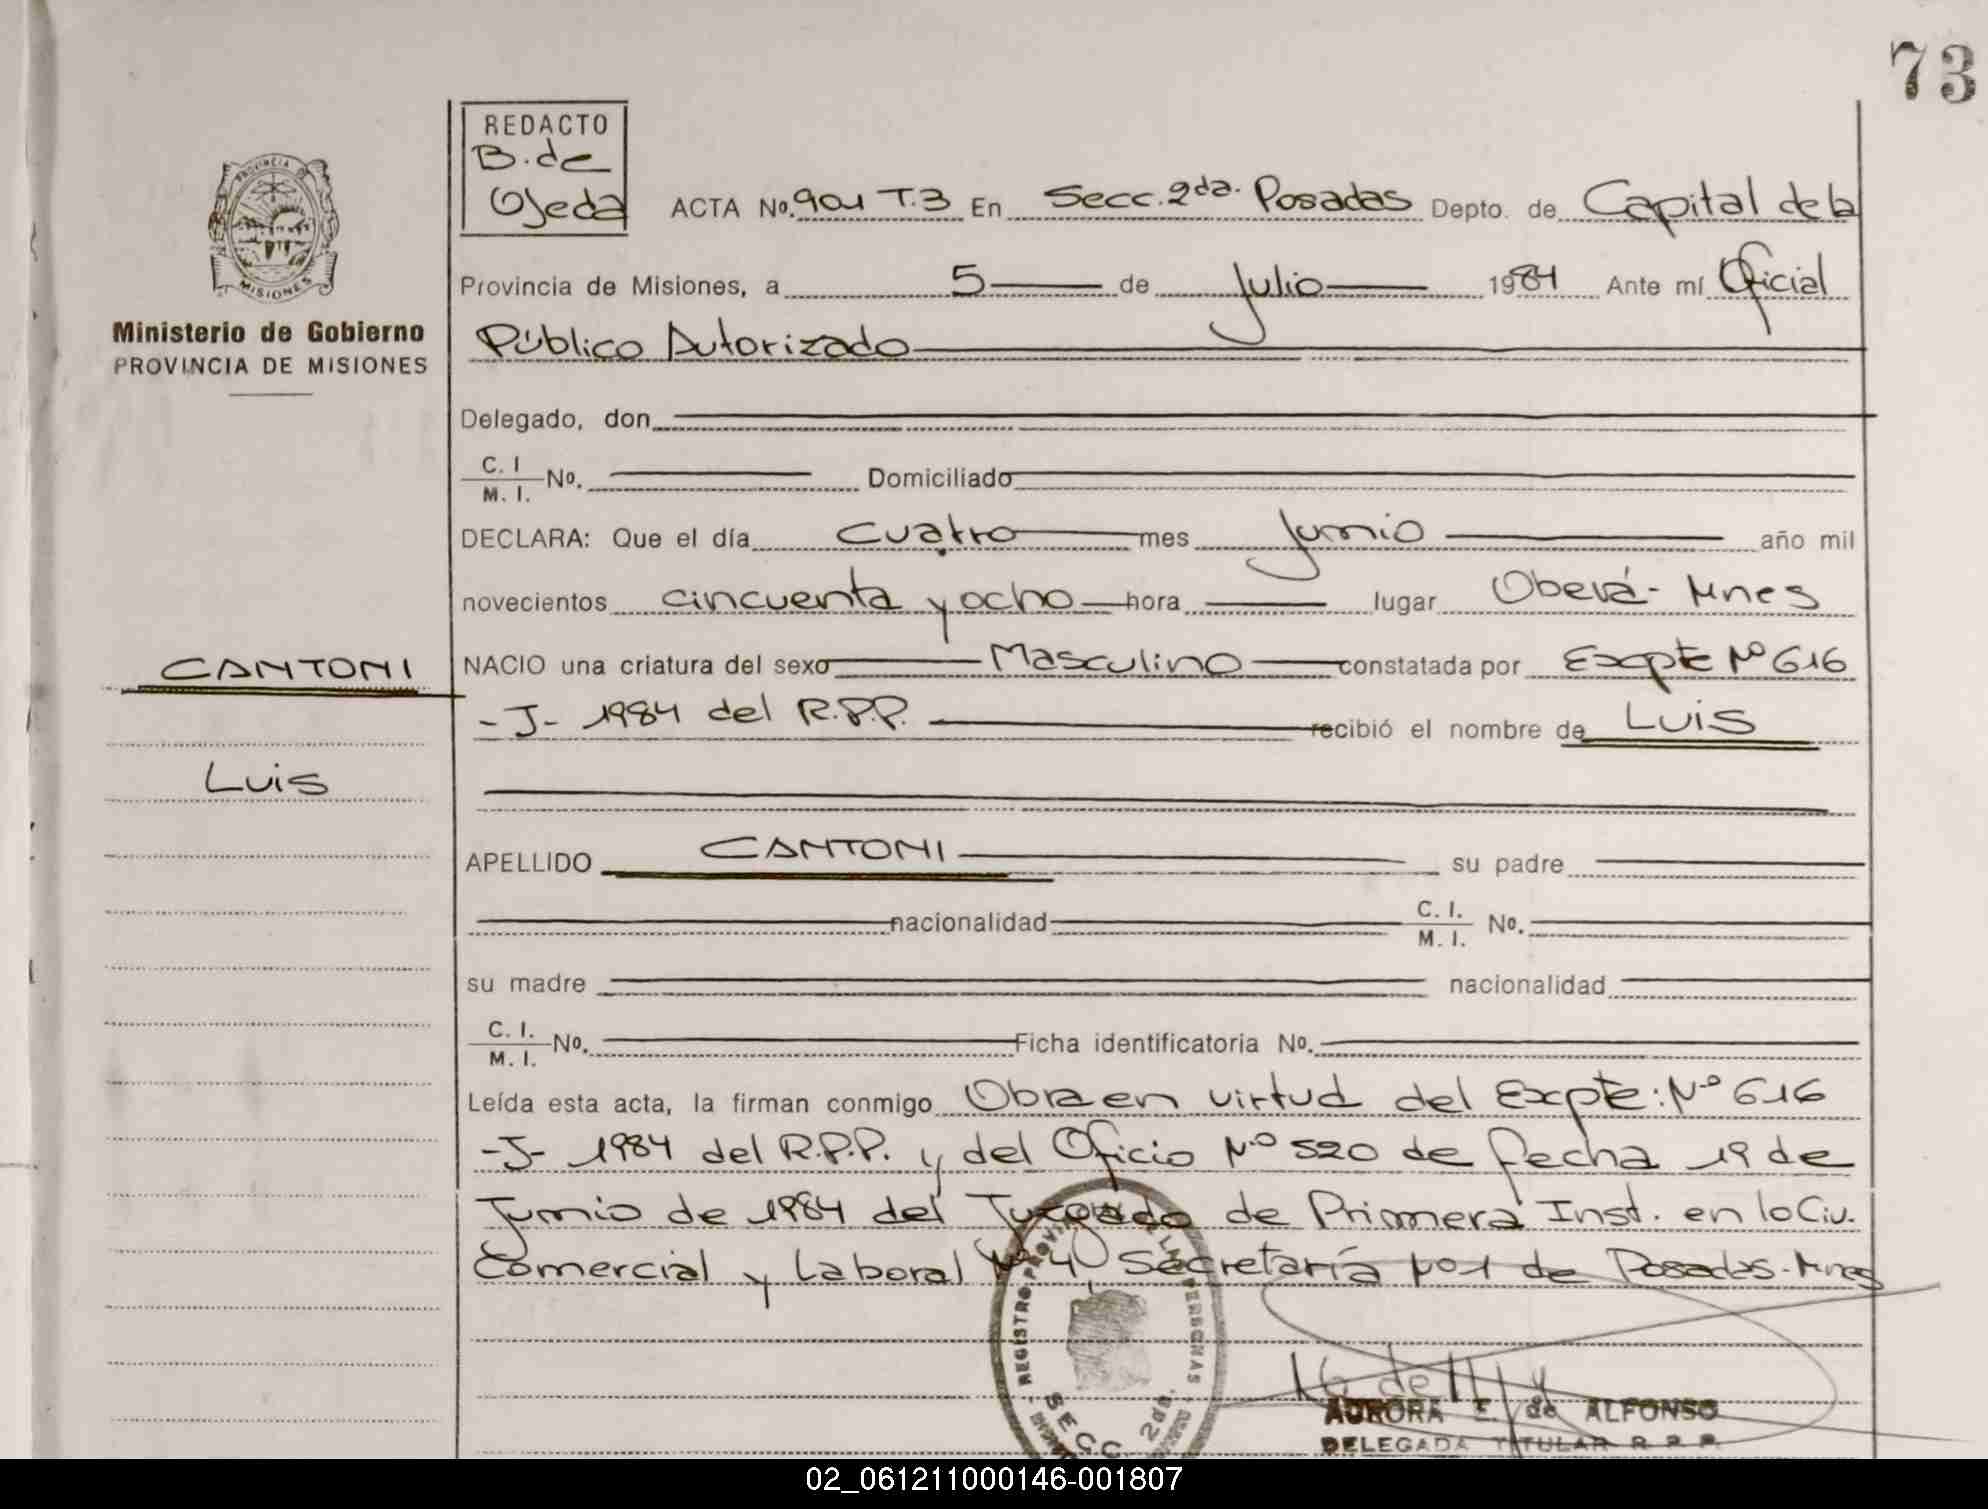 73
REDACTO
B. de
Ojeda
ACTA Nº. 901 T.3 En Secc. 2da. Posadas Depto. de Capital de la
PROVINCIA DE
MISIONES
Provincia de Misiones, a 5 de Julio 1984 Ante mí Oficial
Ministerio de Gobierno
PROVINCIA DE MISIONES
Público Autorizado
Delegado, don
C. I
M. I. Nº. Domiciliado
DECLARA: Que el día cuatro mes Junio año mil
novecientos cincuenta y ocho hora lugar Oberá - Mnes
CANTONI
NACIO una criatura del sexo Masculino constatada por Expte Nº 616
-J- 1984 del R.P.P. recibió el nombre de Luis
Luis
APELLIDO CANTONI su padre
nacionalidad C. I.
M. I. Nº.
su madre nacionalidad
C. I.
M. I. Nº. Ficha identificatoria Nº.
Leída esta acta, la firman conmigo Obra en virtud del Expte: Nº 616
-J- 1984 del R.P.P. y del Oficio Nº 520 de fecha 19 de
Junio de 1984 del Juzgado de Primera Inst. en lo Civ.
Comercial y Laboral Nº 4, Secretaría Nº 1 de Posadas - Mnes
REGISTRO PROVINCIAL DE LAS PERSONAS
SECC. 2da.
AURORA E. de ALFONSO
DELEGADA TITULAR R. P. P.
02_061211000146-001807